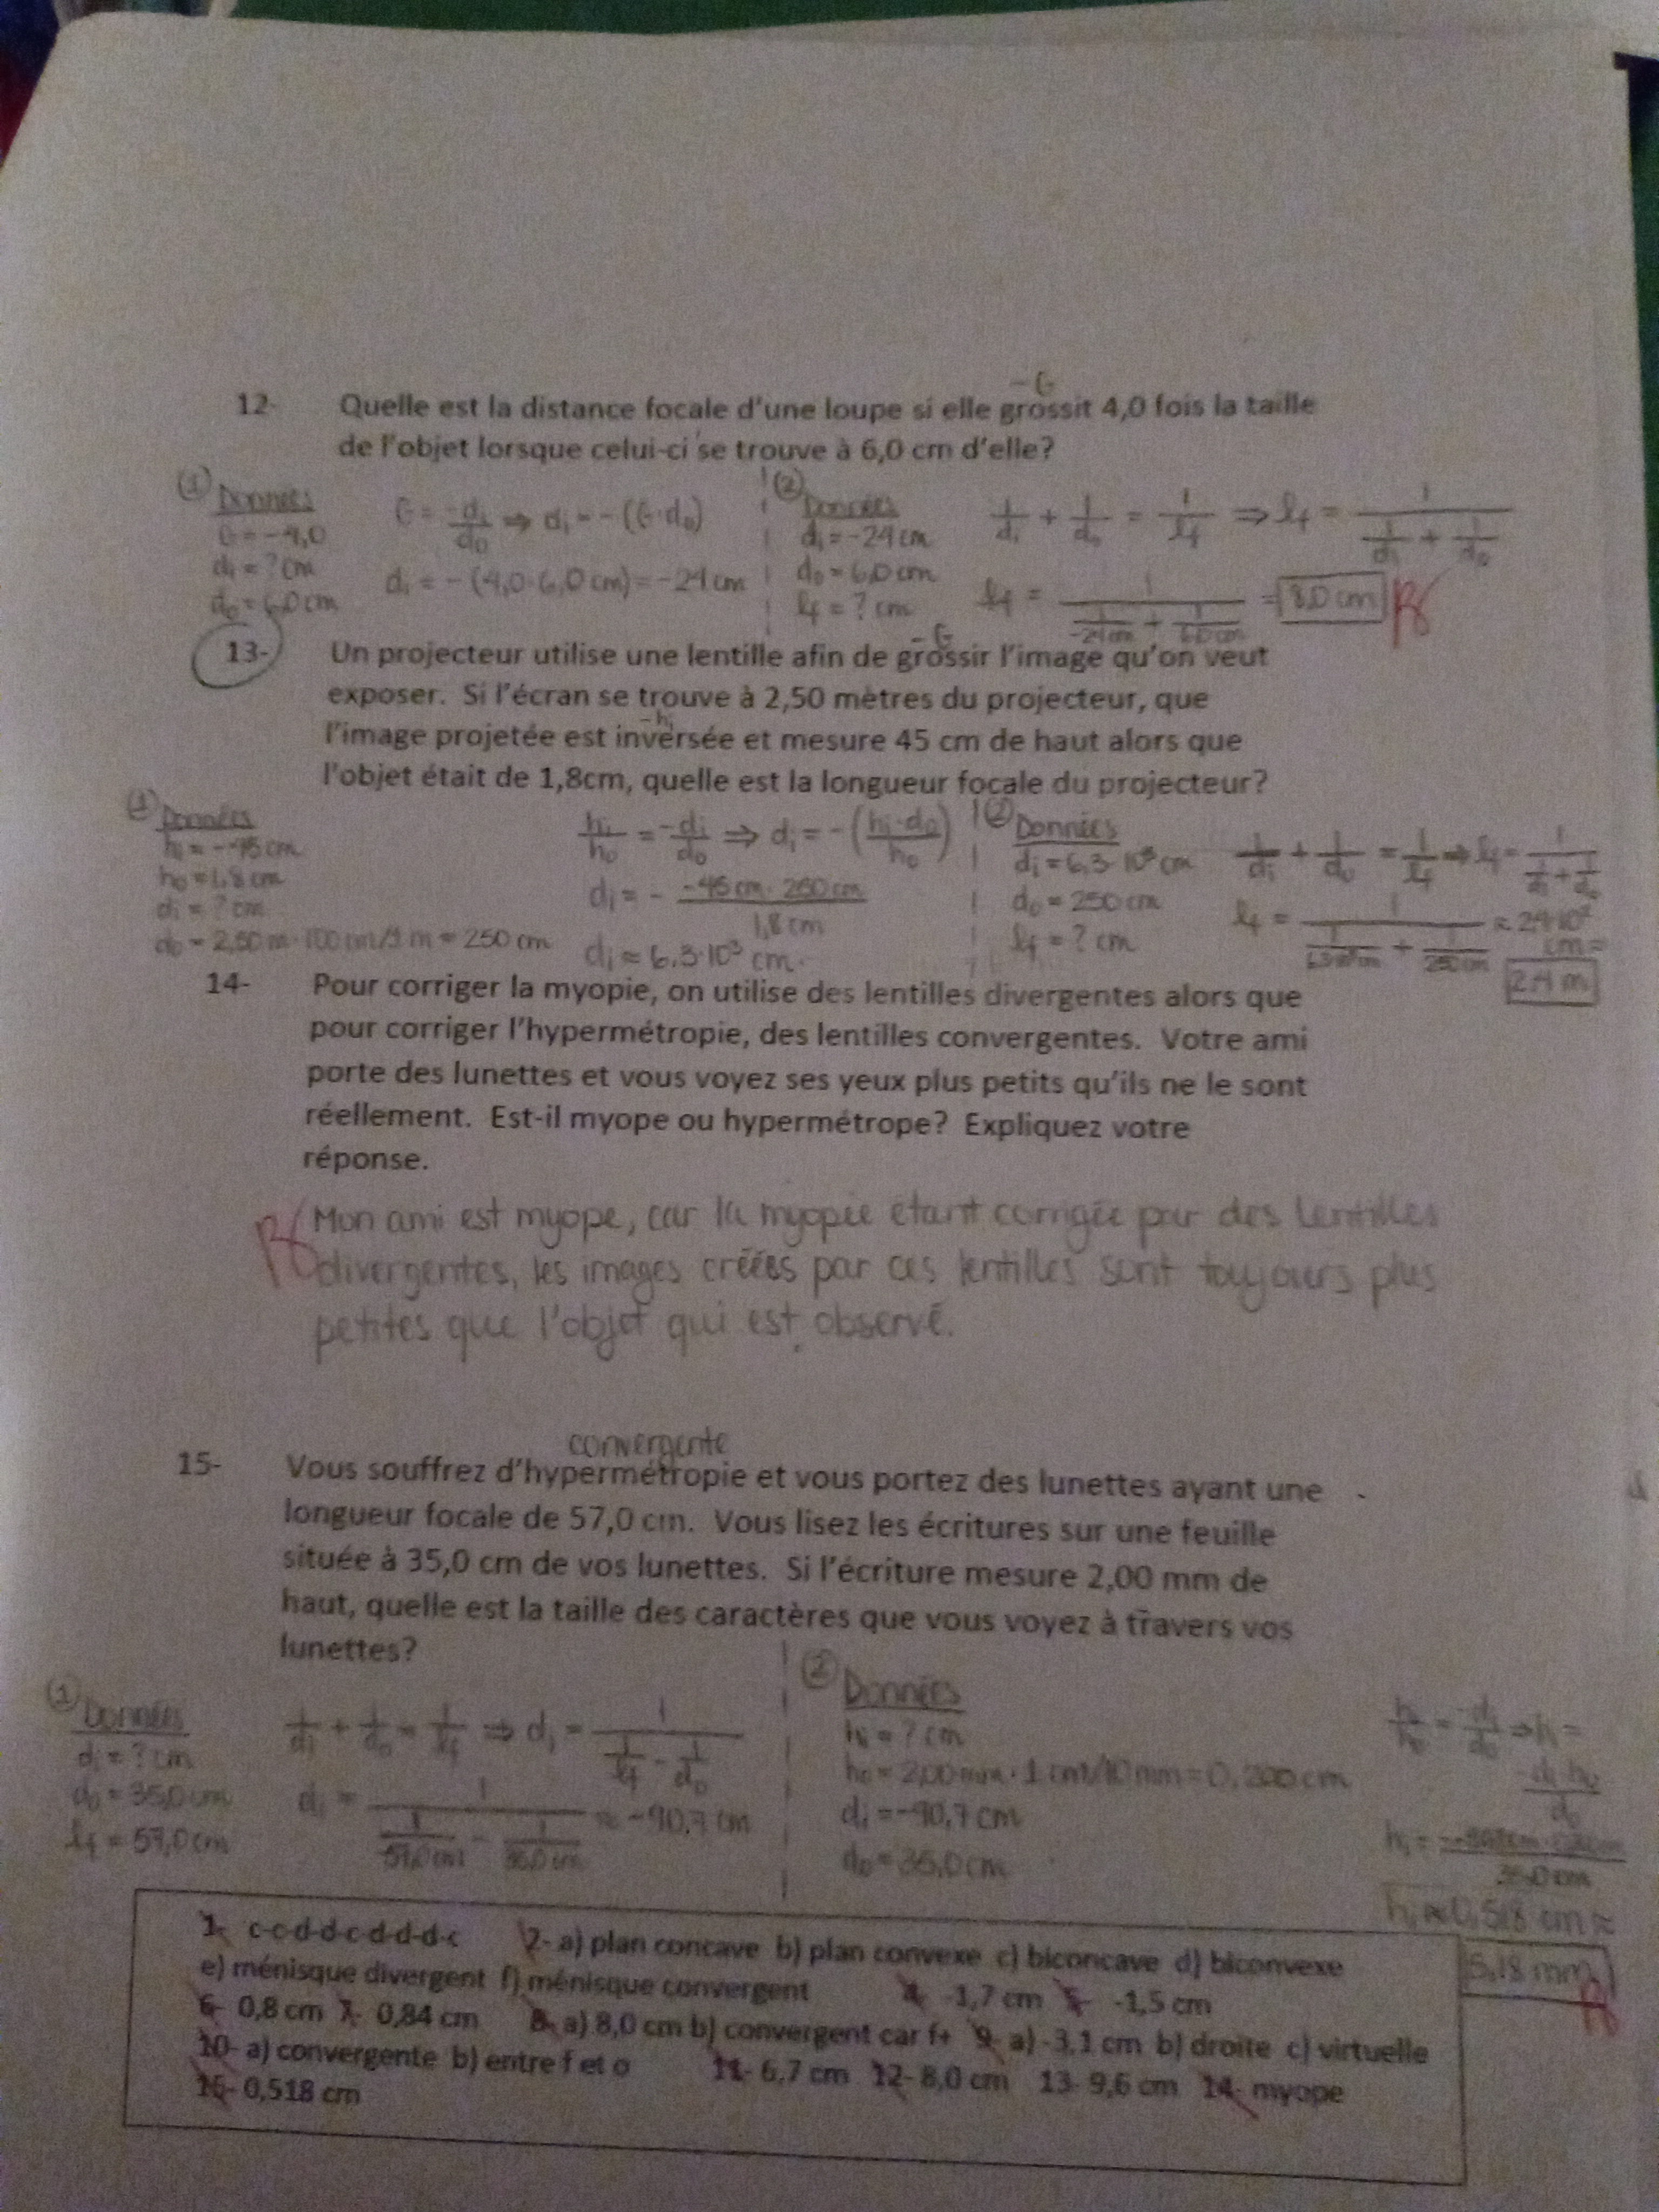 12- Quelle est la distance focale d'une loupe si elle grossit 4,0 fois la taille
-G
de l'objet lorsque celui-ci se trouve à 6,0 cm d'elle?
① Données
G = -4,0
di = ? cm
do = 6,0 cm
G = -di/do ⇒ di = -(G·do)
di = -(4,0·6,0 cm) = -24 cm
② Données
di = -24 cm
do = 6,0 cm
lf = ? cm
1/di + 1/do = 1/lf ⇒ lf = 1/(1/di + 1/do)
lf = 1/(1/-24cm + 1/6,0cm) = 8,0 cm
13- Un projecteur utilise une lentille afin de grossir l'image qu'on veut
-G
exposer. Si l'écran se trouve à 2,50 mètres du projecteur, que
l'image projetée est inversée et mesure 45 cm de haut alors que
-hi
l'objet était de 1,8cm, quelle est la longueur focale du projecteur?
① Données
hi = -45 cm
ho = 1,8 cm
di = ? cm
do = 2,50 m · 100 cm/1 m = 250 cm
hi/ho = -di/do ⇒ di = -(hi·do/ho)
di = - -45 cm · 250 cm/1,8 cm
di ≈ 6,3·10³ cm
② Données
di = 6,3·10³ cm
do = 250 cm
lf = ? cm
1/di + 1/do = 1/lf ⇒ lf = 1/(1/di + 1/do)
lf = 1/(1/6,3·10³cm + 1/250cm) ≈ 2,4·10² cm =
2,4 m
14- Pour corriger la myopie, on utilise des lentilles divergentes alors que
pour corriger l'hypermétropie, des lentilles convergentes. Votre ami
porte des lunettes et vous voyez ses yeux plus petits qu'ils ne le sont
réellement. Est-il myope ou hypermétrope? Expliquez votre
réponse.
Mon ami est myope, car la myopie étant corrigée par des lentilles
divergentes, les images créées par ces lentilles sont toujours plus
petites que l'objet qui est observé.
convergente
15- Vous souffrez d'hypermétropie et vous portez des lunettes ayant une
longueur focale de 57,0 cm. Vous lisez les écritures sur une feuille
située à 35,0 cm de vos lunettes. Si l'écriture mesure 2,00 mm de
haut, quelle est la taille des caractères que vous voyez à travers vos
lunettes?
① Données
di = ? cm
do = 35,0 cm
lf = 57,0 cm
1/di + 1/do = 1/lf ⇒ di = 1/(1/lf - 1/do)
di = 1/(1/57,0cm - 1/35,0cm) ≈ -90,7 cm
② Données
hi = ? cm
ho = 2,00 mm · 1 cm/10 mm = 0,200 cm
di = -90,7 cm
do = 35,0 cm
hi/ho = -di/do ⇒ hi =
-di·ho/do
35,0 cm
hi ≈ 0,518 cm ≈
5,18 mm
1- c-c-d-d-c-d-d-d-c 2- a) plan concave b) plan convexe c) biconcave d) biconvexe
e) ménisque divergent f) ménisque convergent 4- -1,7 cm 5- -1,5 cm
6- 0,8 cm 7- 0,84 cm 8- a) 8,0 cm b) convergent car f+ 9- a) -3,1 cm b) droite c) virtuelle
10- a) convergente b) entre f et o 11- 6,7 cm 12- 8,0 cm 13- 9,6 cm 14- myope
15- 0,518 cm